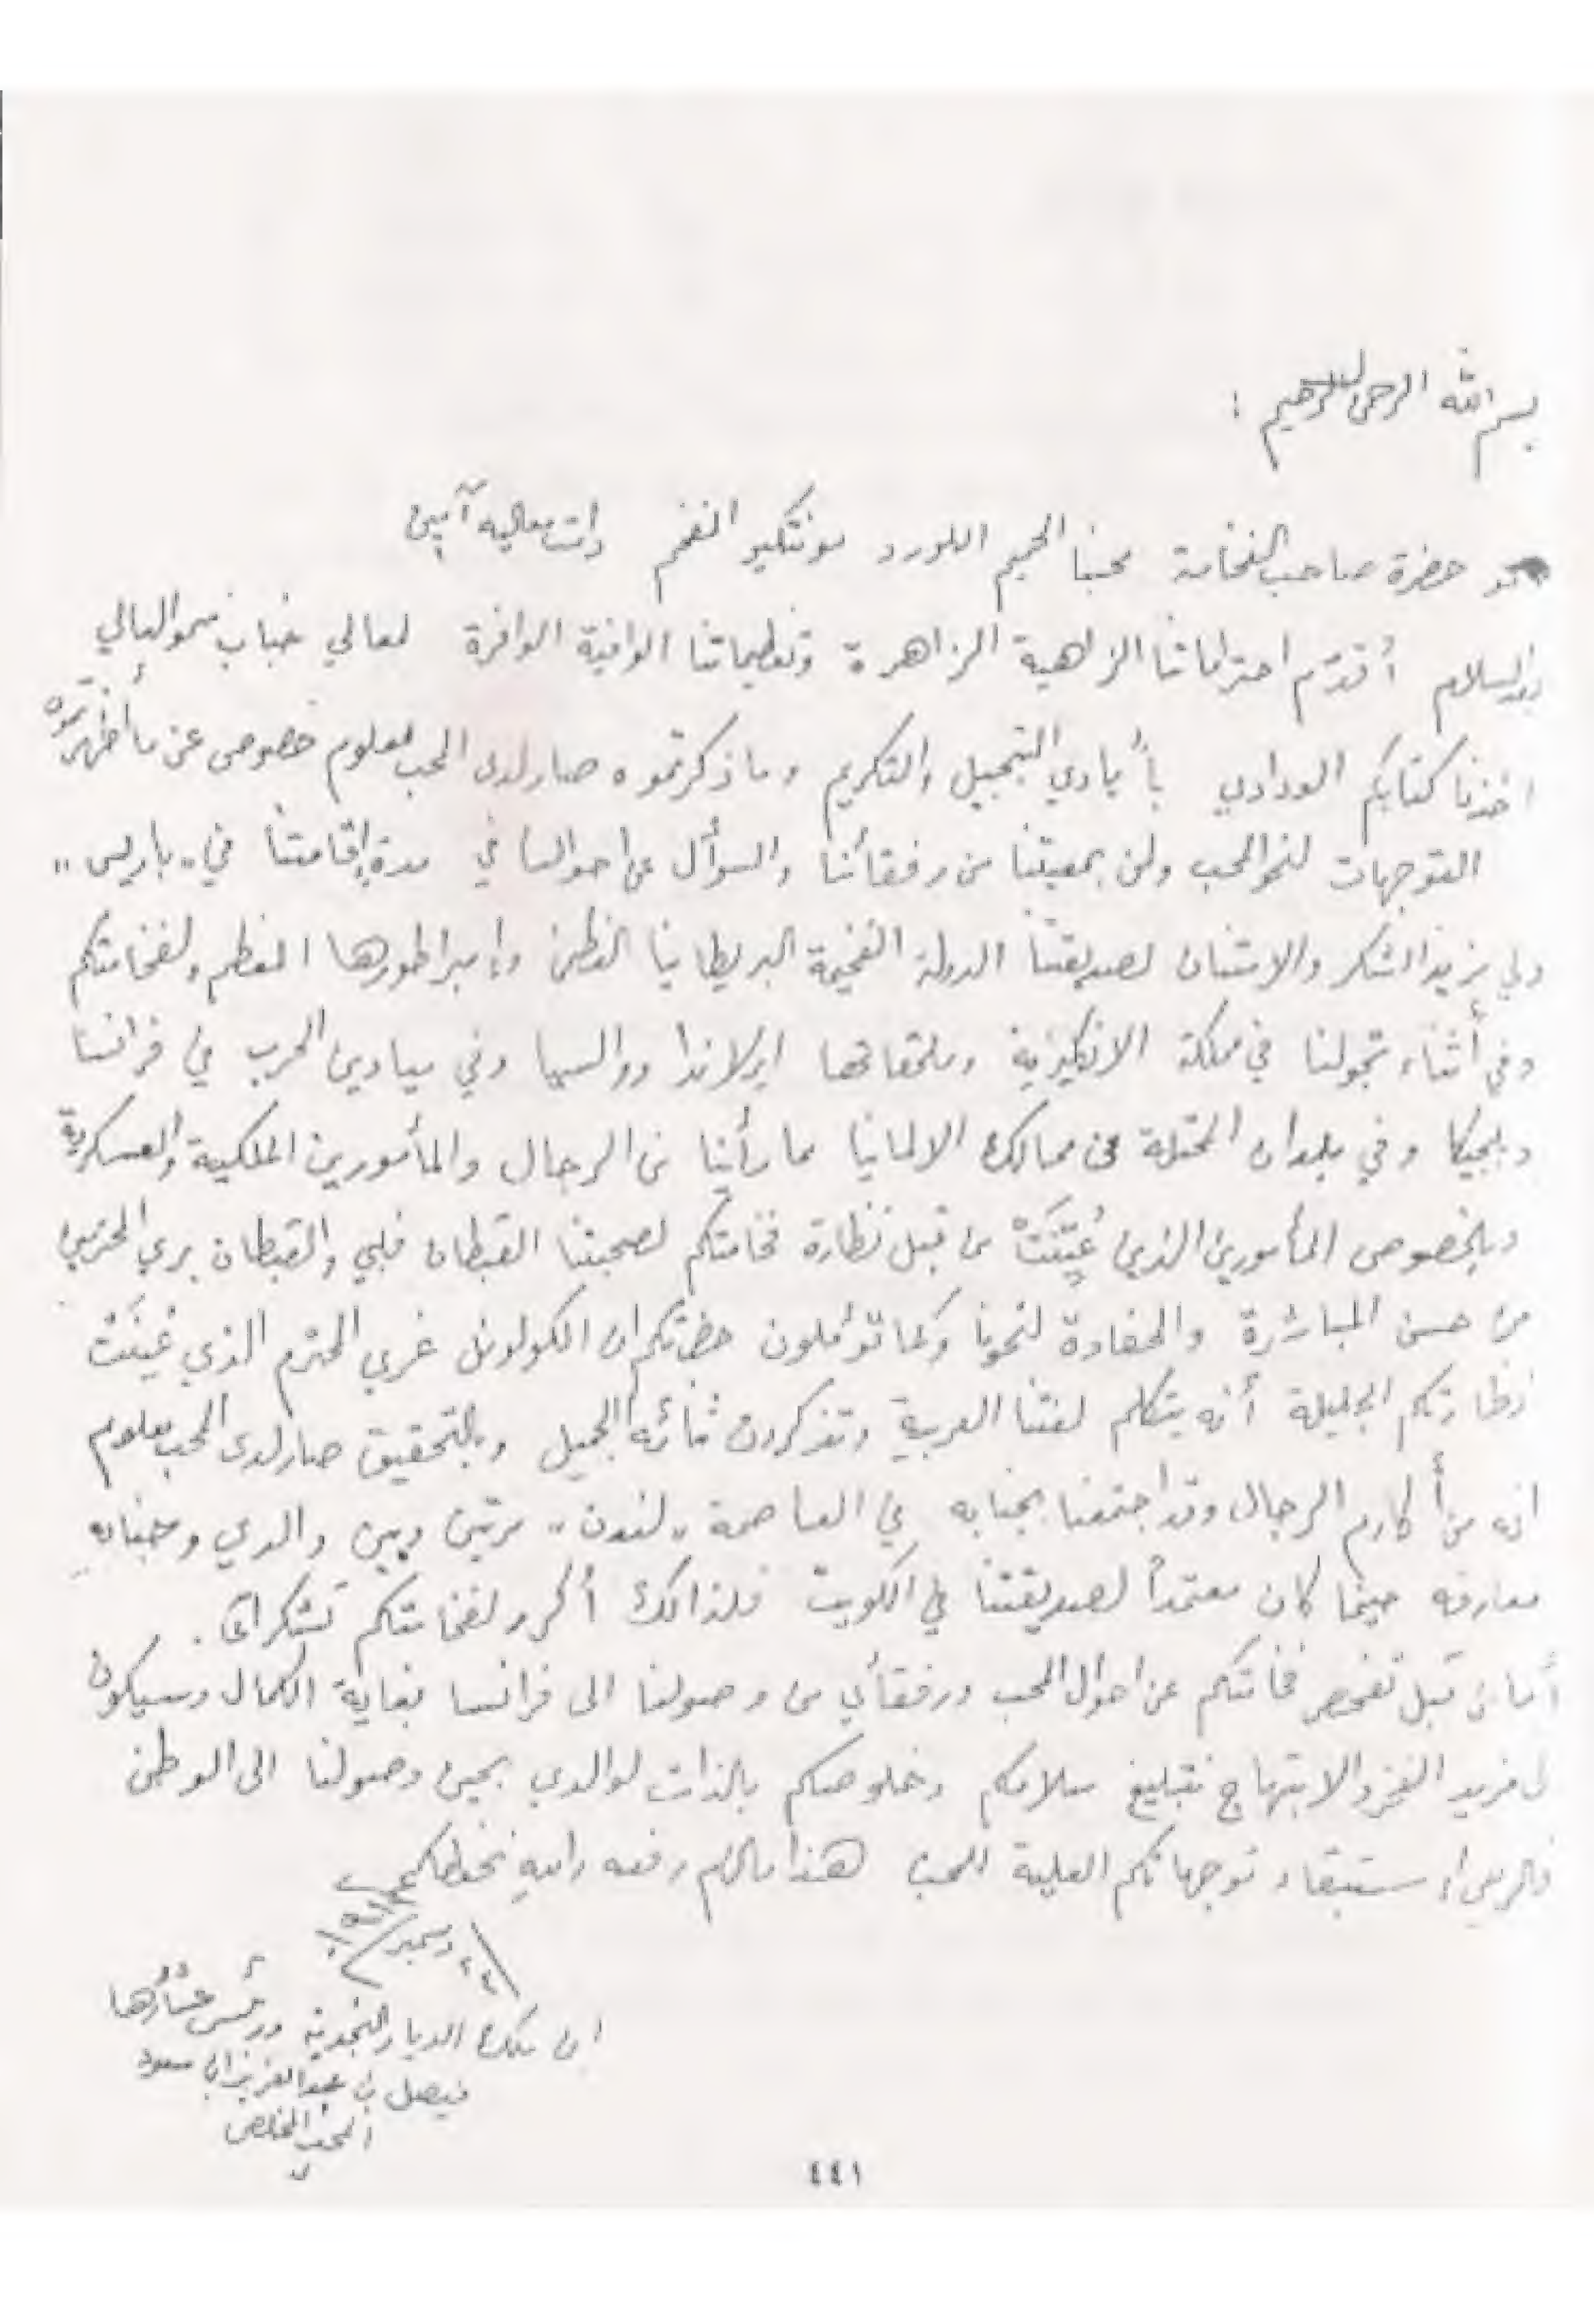 بسم الله الرحمن الرحيم :
حضرة صاحب الفخامة محبنا الحميم اللورد مونتكيو المفخم دامت معاليه آمين
بعد السلام أقدّم احتراماتنا الزاهية الزاهرة وتعظيماتنا الوافية الوافرة لمعالي جناب سمو العالي
اخذنا كتابكم الودادي بأيادي التبجيل والتكريم وما ذكرتموه صار لدى المحب معلوم خصوصى عن ما أظهرتموه
التوجهات لنحو المحب ولمن بمعيتنا من رفقائنا والسؤال عن احوالنا في مدة إقامتنا في „باريس„
ولي مزيد الشكر والامتنان لصديقتنا الدولة الفخيمة البريطانيا العظمى وإمبراطورها المعظم ولفخامتكم
وفي أثناء تجولنا في مملكة الانكليزية وملحقاتها ايرلاندا ووالسيا وفي ميادين الحرب في فرانسا
وبلجيكا وفي بلدان المحتلة من ممالك الالمانيا مما رأينا من الرجال والمأمورين الملكية والعسكرية
وبلخصوص المأمورين الذين عُيّنَتْ من قبل نظارة فخامتكم لصحبتنا القبطان فلبي والقبطان بري المحترمين
من حسن المباشرة والحفاوة لنحونا وكما تؤملون حضرتكم ان الكولونل غري المحترم الذي عُيّنَتْ
نظارتكم الجليلة أنه يتكلم لغتنا العربية وتذكرون ثنائه الجميل وبلتحقيق صار لدى المحب معلوم
انه من أكارم الرجال وقد اجتمعنا بجنابه في العاصمة „لندن„ مرتين وبين والدي وجنابه
معارفه حينما كان معتمداً لصديقتنا في الكويت فلذالك أكرر لفخامتكم تشكراتي.
أما من قبل تفحص فخامتكم عن احوال المحب ورفقائي من وصولنا الى فرانسا بغاية الكمال وسيكون
لي مزيد الفخر والابتهاج بتبليغ سلامكم وخلوصكم بالذات لوالدي بحين وصولنا الى الوطن
استبقاء توجهاتكم العلية المحب هذا مالزم رفعه والله يحفظكم
٢٤ دسمبر
ابن ملك الديار النجدية ورئيس عشائرها
فيصل بن عبدالعزيز ال سعود
المحب المخلص
٤٤١